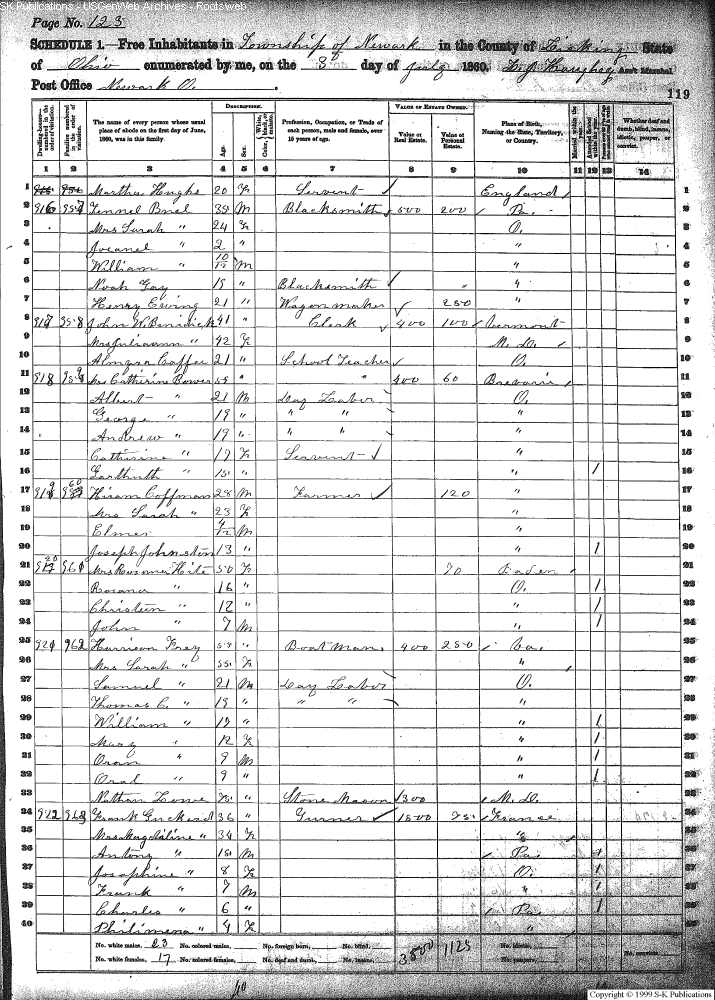 SK Publications - USGenWeb Archives - Rootsweb
Page No. 123
SCHEDULE 1.—Free Inhabitants in Township of Newark in the County of Licking State
of Ohio enumerated by me, on the 3d day of July 1860. Ass't Marshal
Post Office Newark O.
119
DESCRIPTION. VALUE OF ESTATE OWNED.
The name of every person whose usual place of abode on the first day of June, 1860, was in this family. Age. Sex. Profession, Occupation, or Trade of each person, male and female, over 15 years of age. Value of Real Estate. Value of Personal Estate. Place of Birth, Naming the State, Territory, or Country. Whether deaf and dumb, blind, insane, idiotic, pauper, or convict.
1 2 3 4 5 6 7 8 9 10 11 12 13 14
1 Martha Hughs 20 F Servent England 1
2 916 957 M Blacksmith 500 200 Pa. 2
3 Mrs Sarah " 24 F O. 3
4 " 2 " " 4
5 William " 10/12 M " 5
6 Noah Gay 19 " Blacksmith " " 6
7 Henry Ewing 21 " Wagon maker 250 " 7
8 917 958 John W. Benidick 41 " Clerk 400 100 Vermont 8
9 Mrs Juliaann " 42 F M.D. 9
10 Almyra Coffee 21 " School Teacher O. 10
11 918 959 Mrs Catherine Bower " " 400 60 11
12 Albert " 21 M Day Labor O. 12
13 George " 19 " " " " 13
14 Andrew " 19 " " " " 14
15 Catherine " 17 F Servent " 15
16 " 15 " " 1 16
17 919 960 Hiram Coffman 28 M Farmer 120 " 17
18 Mrs Sarah " 23 F " 18
19 Elmer 4/12 M " 19
20 Joseph Johnston 13 " " 1 20
21 920 961 Mrs Hite 50 F 70 Baden 21
22 " 16 " O. 1 22
23 Christein " 12 " " 1 23
24 John " 7 M " 1 24
25 921 962 Harrison Frey " Boat Man 400 250 Va. 25
26 Mrs Sarah " 55 F " 26
27 Samuel " 21 M Day Labor O. 27
28 Thomas C. " 19 " " " " 28
29 William " " " 1 29
30 Mary " 12 F " 1 30
31 Oran " 9 M " 1 31
32 Oral " 9 " " 1 32
33 Nathan Lowe " Stone Mason 1300 M.D. 33
34 922 963 Frank 36 " 1500 25 France 34
35 Mrs Magdaline " 34 F " 35
36 Antony " 15 M Pa. 1 36
37 Josephine " 8 F O. 1 37
38 Frank " 7 M " 1 38
39 Charles " 6 " Pa. 1 39
40 Philimena " 4 F " 40
No. white males, 23 No. colored males, No. foreign born, No. blind, 3800 1125 No. idiotic, No. convicts,
No. white females, 17 No. colored females, No. deaf and dumb, No. insane, No. paupers,
40
Copyright © 1999 S-K Publications